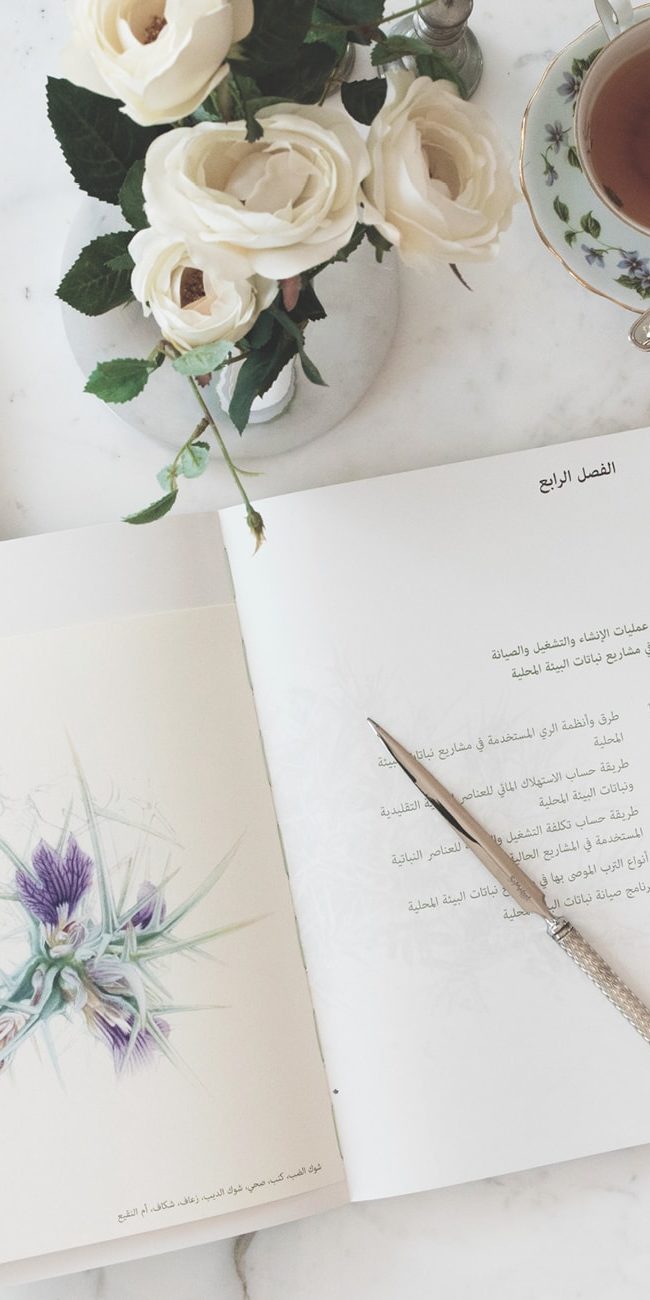 الفصل الرابع
عمليات الإنشاء والتشغيل والصيانة
مشاريع نباتات البيئة المحلية
طرق وأنظمة الري المستخدمة في مشاريع نباتات البيئة
المحلية
طريقة حساب الاستهلاك المائي للعناصر التقليدية
ونباتات البيئة المحلية
طريقة حساب تكلفة التشغيل للعناصر النباتية
المستخدمة في المشاريع الحالية
أنواع الترب الموصى بها في نباتات البيئة المحلية
برنامج صيانة نباتات البيئة المحلية
شوك الضب، كتب، ضحي، شوك الديب، زعاف، شكاف، أم النقيع